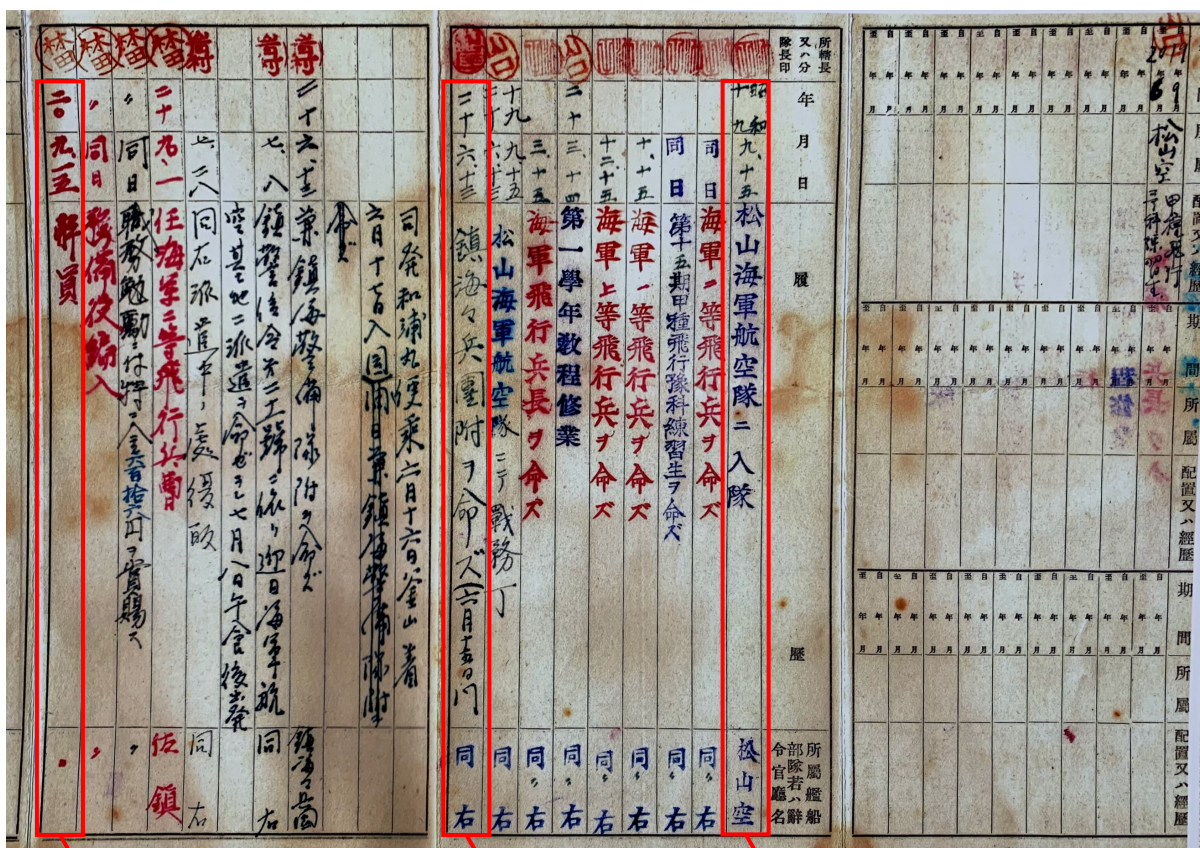 所轄長又ハ分隊長印
年月日
履歴
所屬艦船部隊若ハ辭令官廳名
昭和十九 九、十五 松山海軍航空隊ニ入隊 松山空
同日 海軍二等飛行兵ヲ命ズ 同右
同日 第十五期甲種飛行豫科練習生ヲ命ズ 同右
十、十五 海軍一等飛行兵ヲ命ズ 同右
十二、十五 海軍上等飛行兵ヲ命ズ 同右
二十 三、一四 第一學年教程修業 同右
三、十五 海軍飛行兵長ヲ命ズ 同右
十九 九、十五
二十 六、十三 松山海軍航空隊ニテ戰務丁 同右
二十 六、十三 鎮海々兵團附ヲ命ズ(六月十五日門 同右
司発和浦丸便乗六月十六日釜山着
六月十七日入団
命ズ
二十 六、十三 兼鎮海警備隊附ヲ命ズ 鎮海々兵團
七、八 鎮警信令第二工歸ニ依リ迎日海軍航 同右
空基地ニ派遣ヲ命ゼラレ七月八日午食後出発
七、二八 同右派遣中ノ處復帰 同右
二十 九、一 任海軍二等飛行兵曹 佐鎮
〃 同日 職務勉勵ニ付特ニ金六百拾六円ヲ賞賜ス 〃
〃 同日 豫備役編入 〃
二〇 九、一五 解員
期間
所屬
配置又ハ經歷
自 年 月
至 年 月
松山空
甲種飛行
豫科練習生